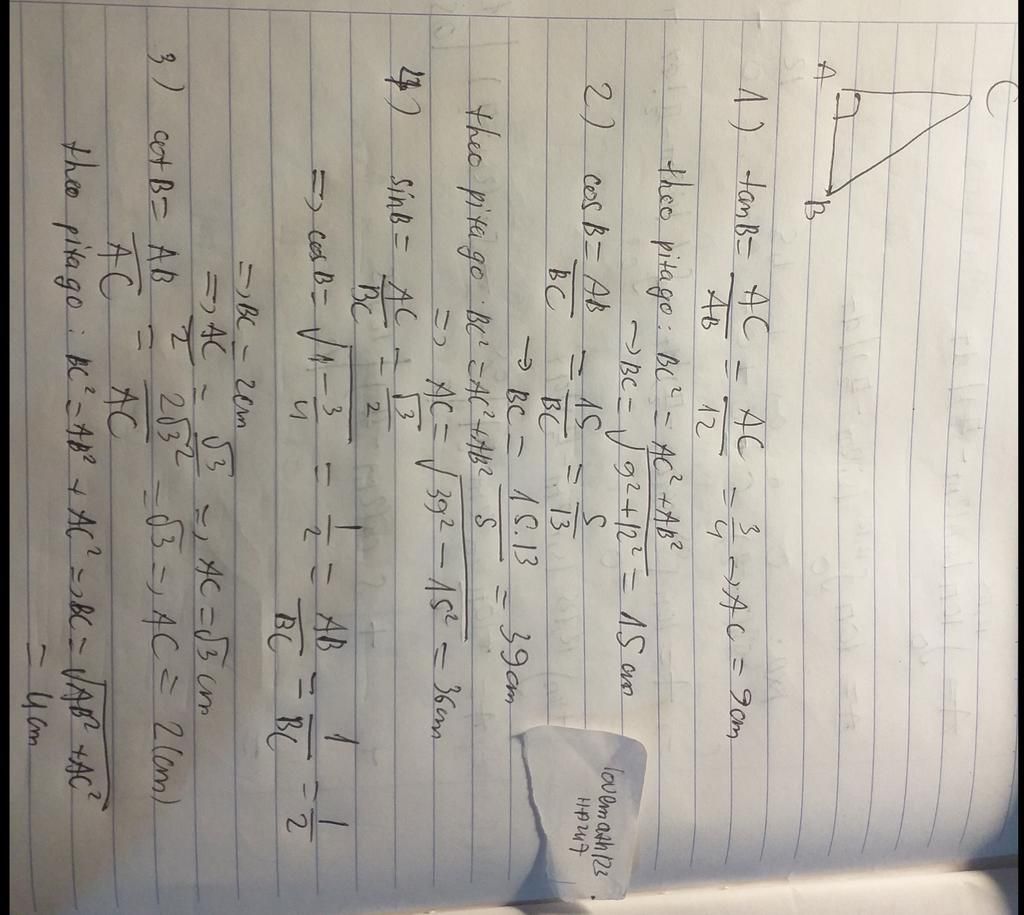 C
A
B
1) tanB = AC/AB = AC/12 = 3/4 → AC = 9cm
theo pitago: BC² = AC² + AB²
→ BC = √(9² + 12²) = 15 cm
2) cosB = AB/BC = 15/BC = 5/13
→ BC = 15.13/5 = 39cm
theo pitago: BC² = AC² + AB²
=> AC = √(39² - 15²) = 36cm
4) sinB = AC/BC = √3/2
=> cosB = √(1 - 3/4) = 1/2 = AB/BC = 1/BC = 1/2
=> BC = 2cm
=> AC/2 = √3/2 => AC = √3 cm
3) cotB = AB/AC = 2√3/AC = √3 => AC = 2(cm)
theo pitago: BC² = AB² + AC² => BC = √(AB² + AC²)
= 4cm
lovemath123